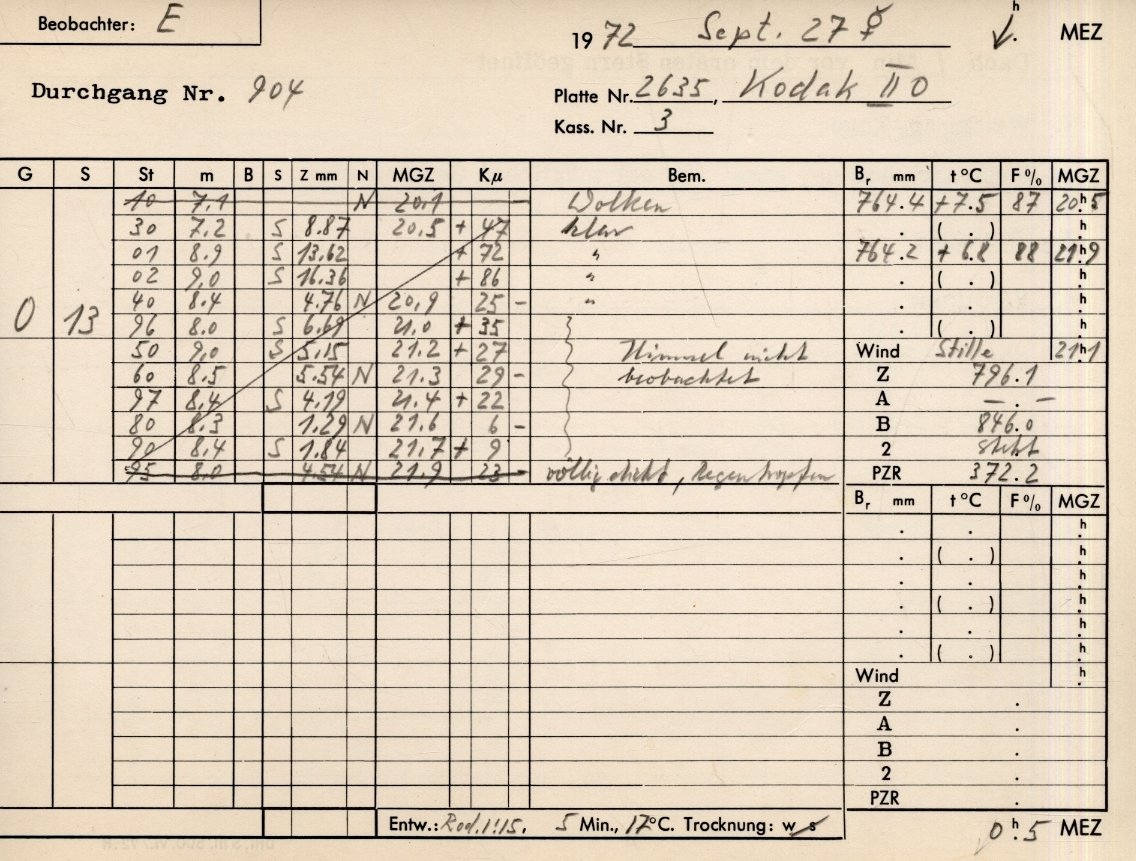 Beobachter: E
1972 Sept. 27 ☿ h . MEZ
Durchgang Nr. 904
Platte Nr. 2635, Kodak II O
Kass. Nr. 3
G S St m B S Z mm N MGZ Kμ Bem. Br mm t °C F % MGZ
10 7.1 N 20,1 — Wolken 764.4 +7.5 87 20h.5
30 7.2 S 8.87 20,5 + 47 klar . ( . ) h.
01 8.9 S 13.62 + 72 " 764.2 + 6.8 88 21h.9
02 9,0 S 16.36 + 86 " . ( . ) h.
40 8.4 4.76 N 20,9 25 - " . . h.
0 13 96 8.0 S 6.69 21.0 + 35 . ( . ) h.
50 9,0 S 5,15 21.2 + 27 Himmel nicht Wind Stille 21h.1
60 8.5 5.54 N 21.3 29 - beobachtet Z 796.1
97 8.4 S 4.19 21.4 + 22 A — . —
80 8.3 1.29 N 21.6 6 - B 846.0
90 8.4 S 1.84 21.7 + 9 2 steht
95 8.0 4.54 N 21.9 23 - völlig dicht, Regentropfen PZR 372.2
Br mm t °C F % MGZ
. . h.
. ( . ) h.
. . h.
. ( . ) h.
. . h.
. ( . ) h.
Wind h.
Z .
A .
B .
2 .
PZR .
Entw.: Rod. 1:15, 5 Min., 17°C. Trocknung: w s
0h.5 MEZ